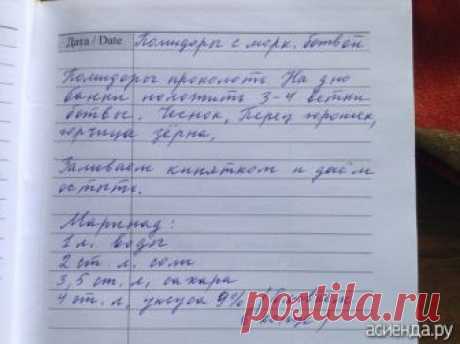 Дата / Date Помидоры с морк. ботвой
Помидоры проколоть На дно
банки положить 3-4 ветки
ботвы. Чеснок, Перец горошек,
горчица зёрна.
Заливаем кипятком и даём
остыть.
Маринад:
1 л. воды
2 ст. л. соли
3,5 ст. л. сахара
4 ст. л. уксуса 9%
postila.ru
асиенда.ру